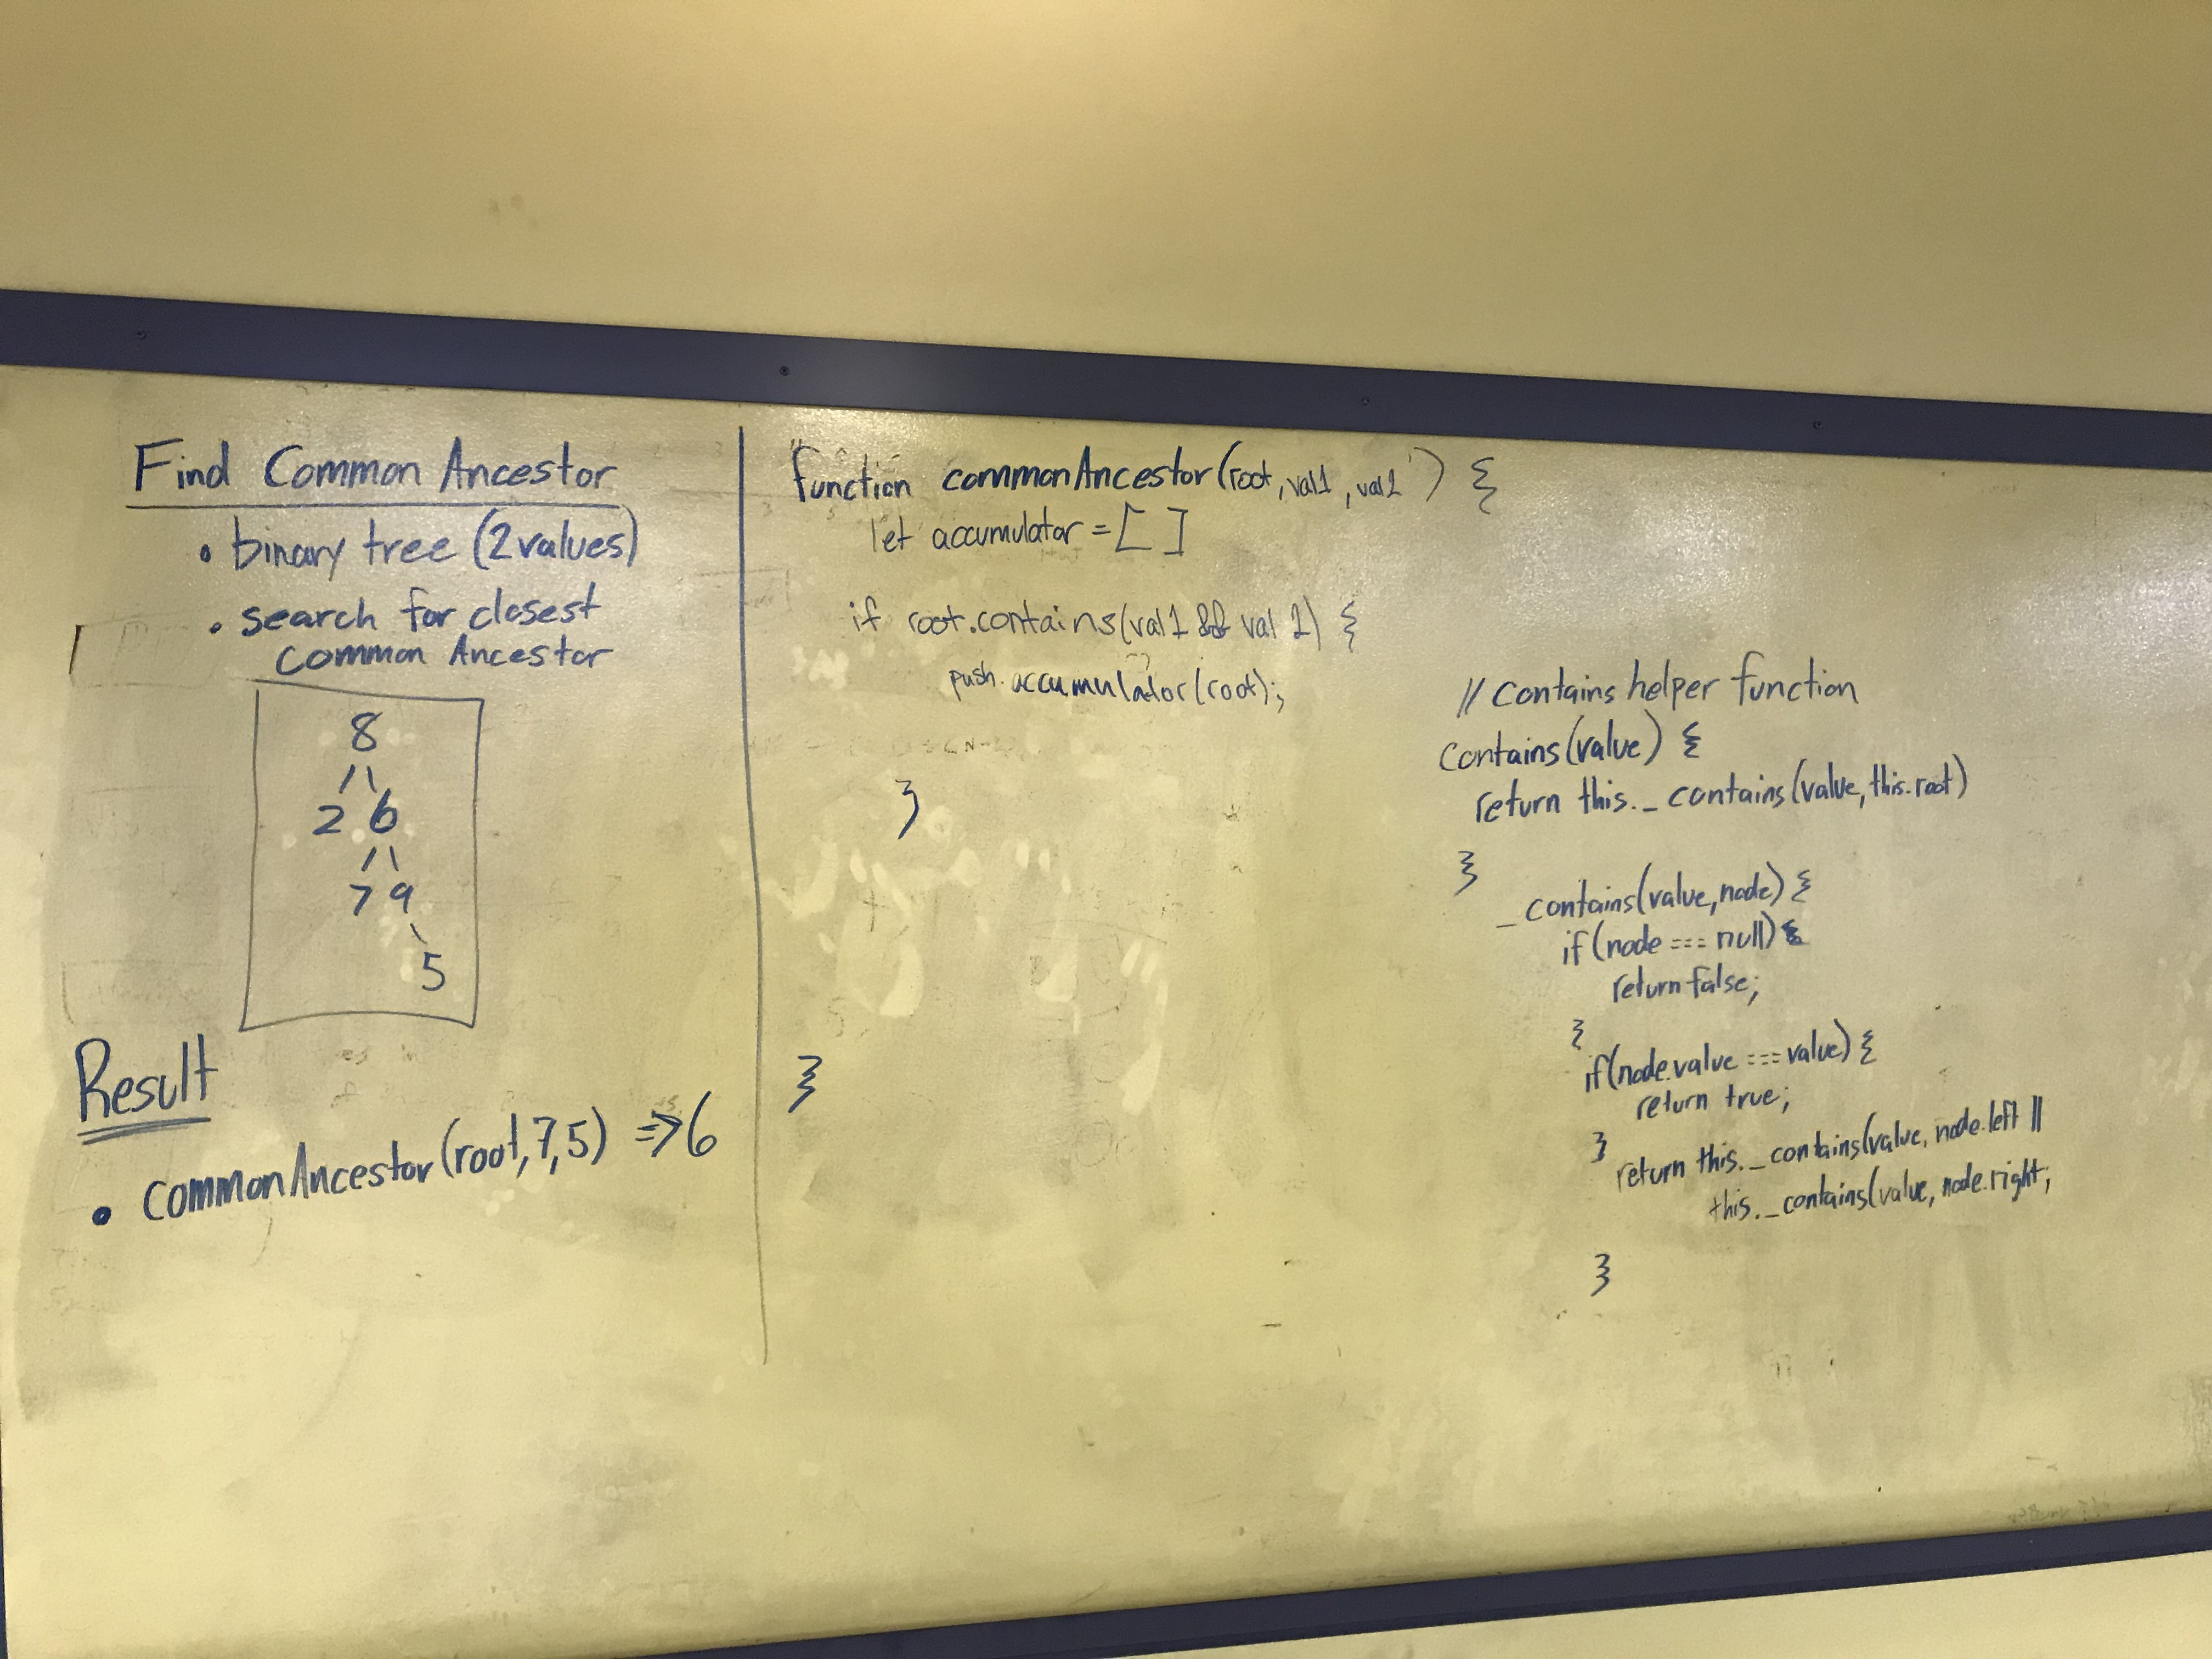 Find Common Ancestor
• binary tree (2 values)
• search for closest
Common Ancestor
8
/ \
2 6
/ \
7 9
\
5
Result
• commonAncestor(root,7,5) => 6
function commonAncestor(root, val1, val2) {
let accumulator = [ ]
if root.contains(val1 && val 2) {
push.accumulator(root);
}
}
// contains helper function
contains(value) {
return this._contains(value, this.root)
}
_contains(value, node) {
if(node === null) {
return false;
}
if(node.value === value) {
return true;
}
return this._contains(value, node.left ||
this._contains(value, node.right;
}